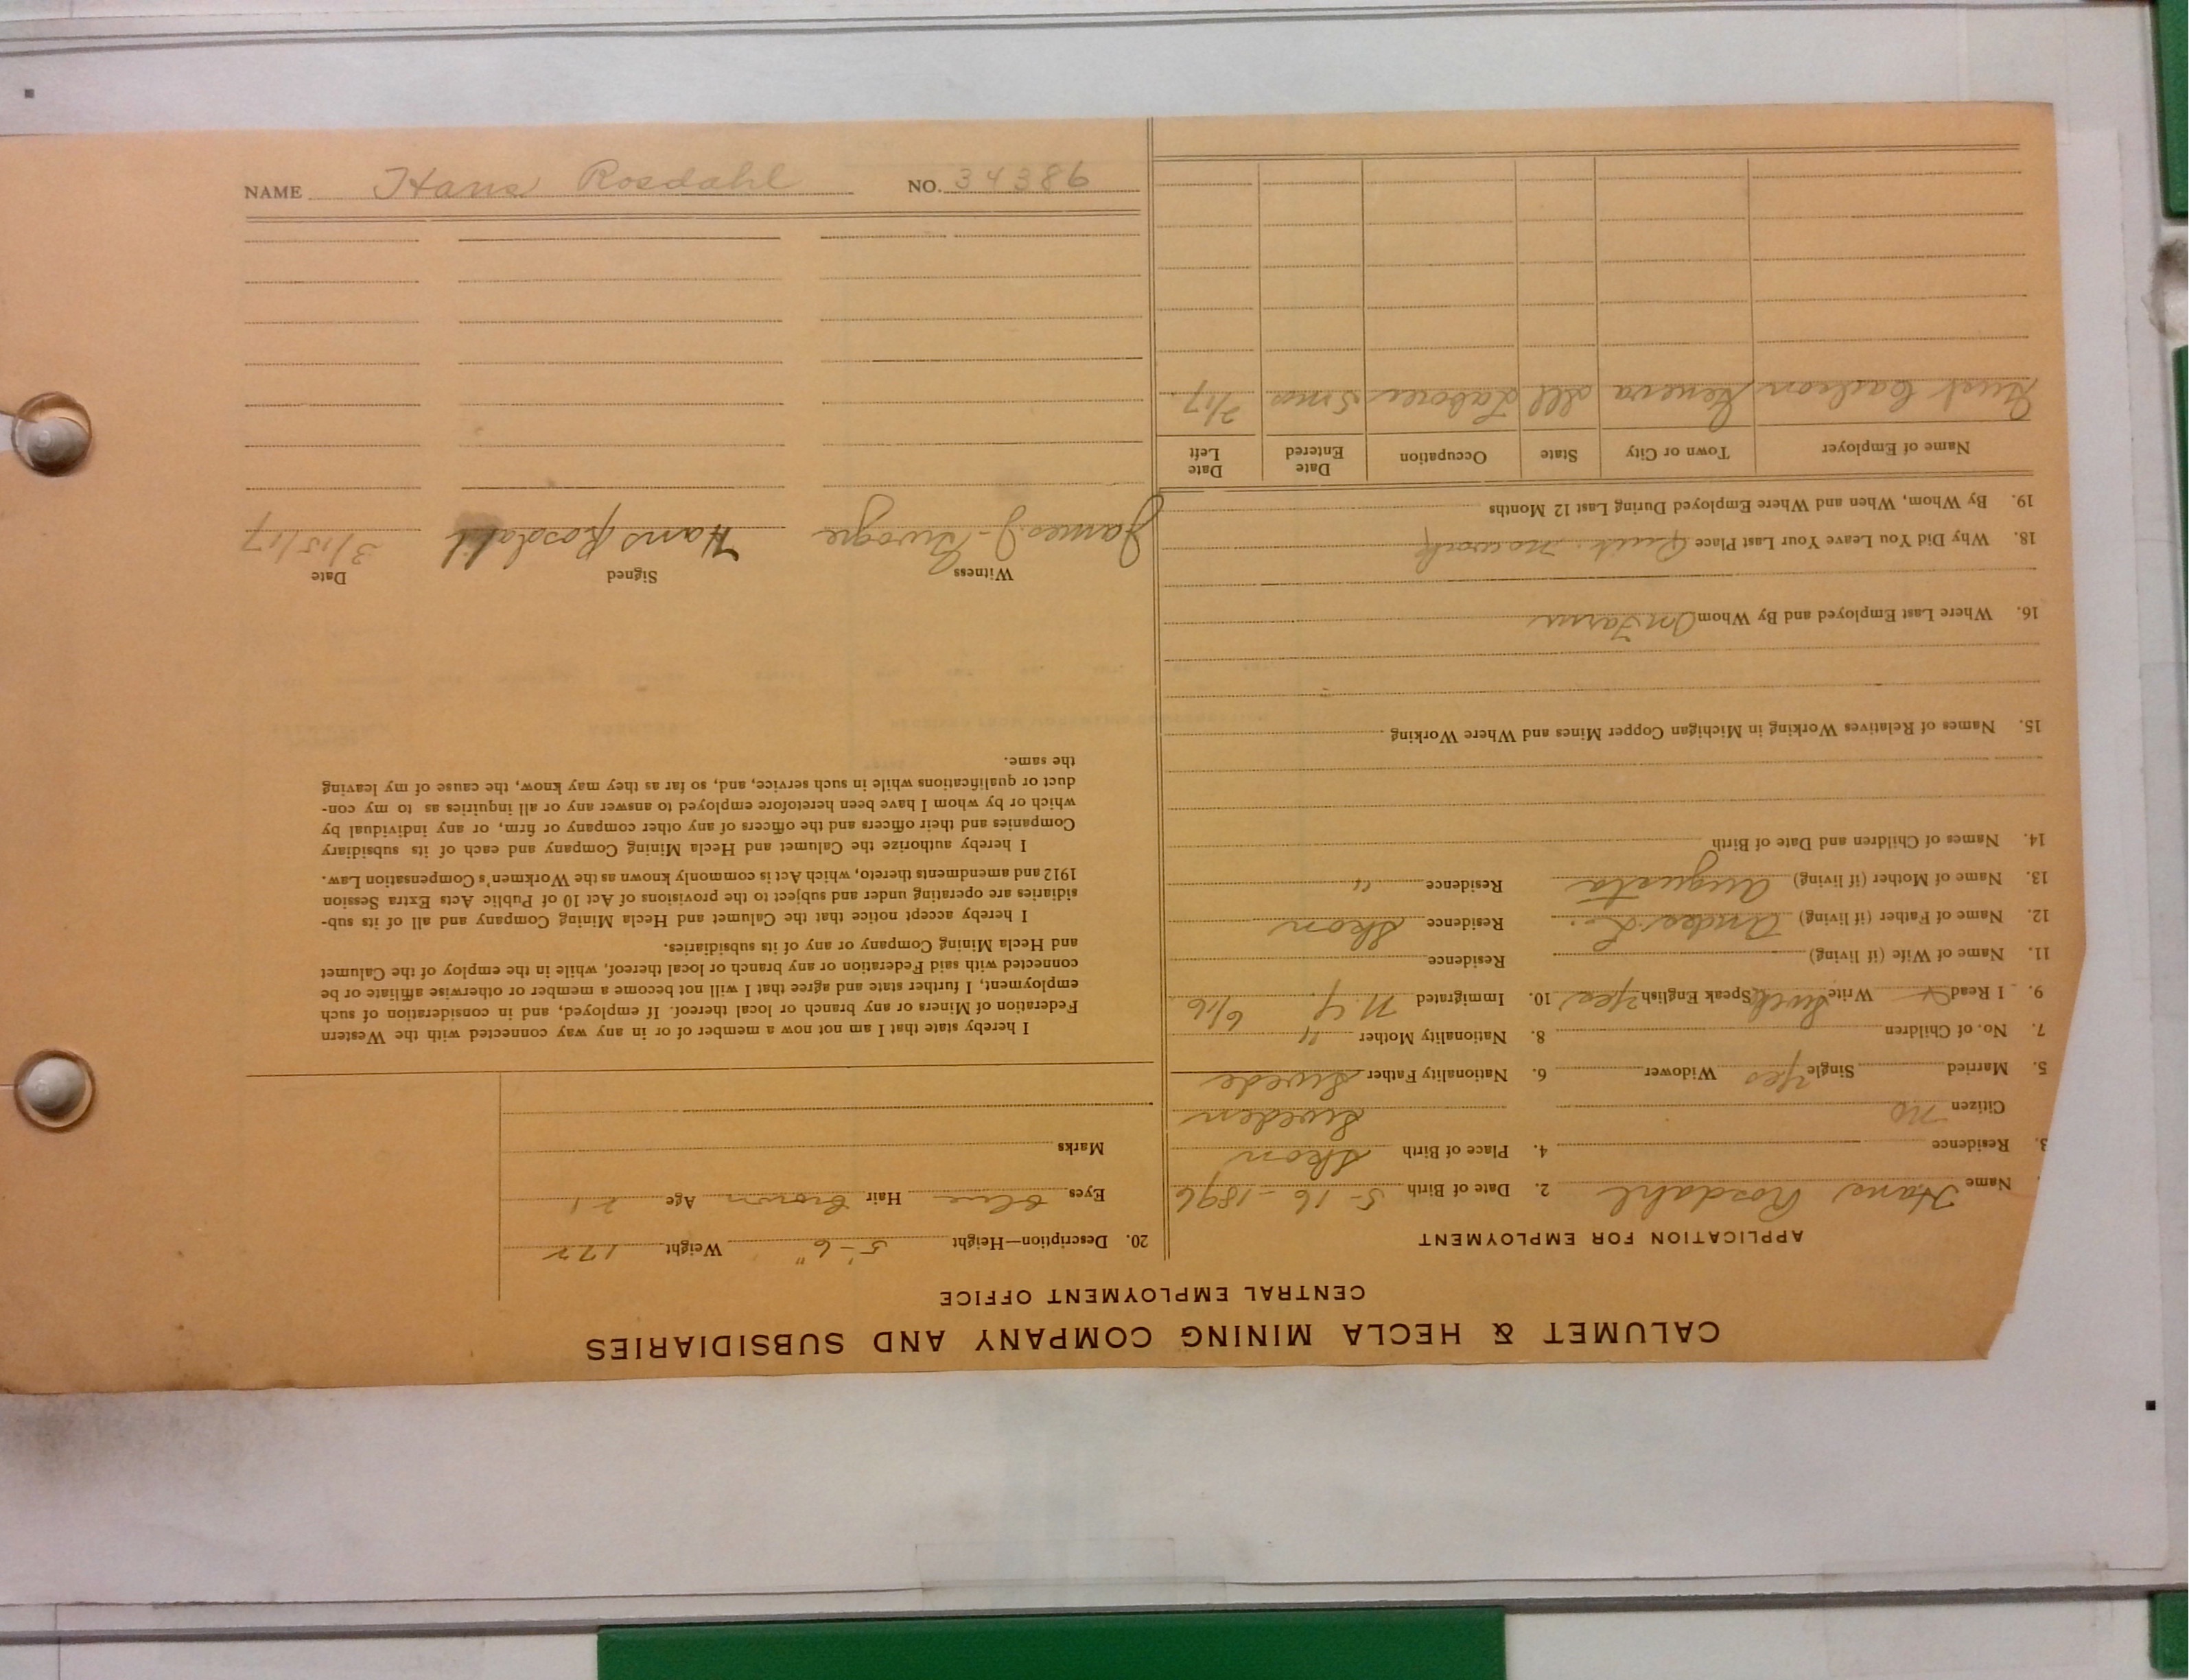 CALUMET & HECLA MINING COMPANY AND SUBSIDIARIES
CENTRAL EMPLOYMENT OFFICE
APPLICATION FOR EMPLOYMENT
Name Hans Rosdahl 2. Date of Birth 5-16-1896
3. Residence 4. Place of Birth Skon
Citizen no Sweden
5. Married Single Yes Widower 6. Nationality Father Swede
7. No. of Children 8. Nationality Mother "
9. I Read Write Swed Speak English Yes 10. Immigrated N.Y. 6/16
11. Name of Wife (if living) Residence
12. Name of Father (if living) Residence Skon
13. Name of Mother (if living) Augusta Residence "
14. Names of Children and Date of Birth
15. Names of Relatives Working in Michigan Copper Mines and Where Working
16. Where Last Employed and By Whom On Farm
18. Why Did You Leave Your Last Place Quit. no work
19. By Whom, When and Where Employed During Last 12 Months
Name of Employer Town or City State Occupation Date Entered Date Left
Geneva Ill Laborer 5 mos 2/17
20. Description—Height 5'-6" Weight 172
Eyes Blue Hair Brown Age 21
Marks
I hereby state that I am not now a member of or in any way connected with the Western
Federation of Miners or any branch or local thereof. If employed, and in consideration of such
employment, I further state and agree that I will not become a member or otherwise affiliate or be
connected with said Federation or any branch or local thereof, while in the employ of the Calumet
and Hecla Mining Company or any of its subsidiaries.
I hereby accept notice that the Calumet and Hecla Mining Company and all of its sub-
sidiaries are operating under and subject to the provisions of Act 10 of Public Acts Extra Session
1912 and amendments thereto, which Act is commonly known as the Workmen's Compensation Law.
I hereby authorize the Calumet and Hecla Mining Company and each of its subsidiary
Companies and their officers and the officers of any other company or firm, or any individual by
which or by whom I have been heretofore employed to answer any or all inquiries as to my con-
duct or qualifications while in such service, and, so far as they may know, the cause of my leaving
the same.
Witness Signed Date
James J. Hans Rosdahl 3/15/17
NAME Hans Rosdahl NO. 34386